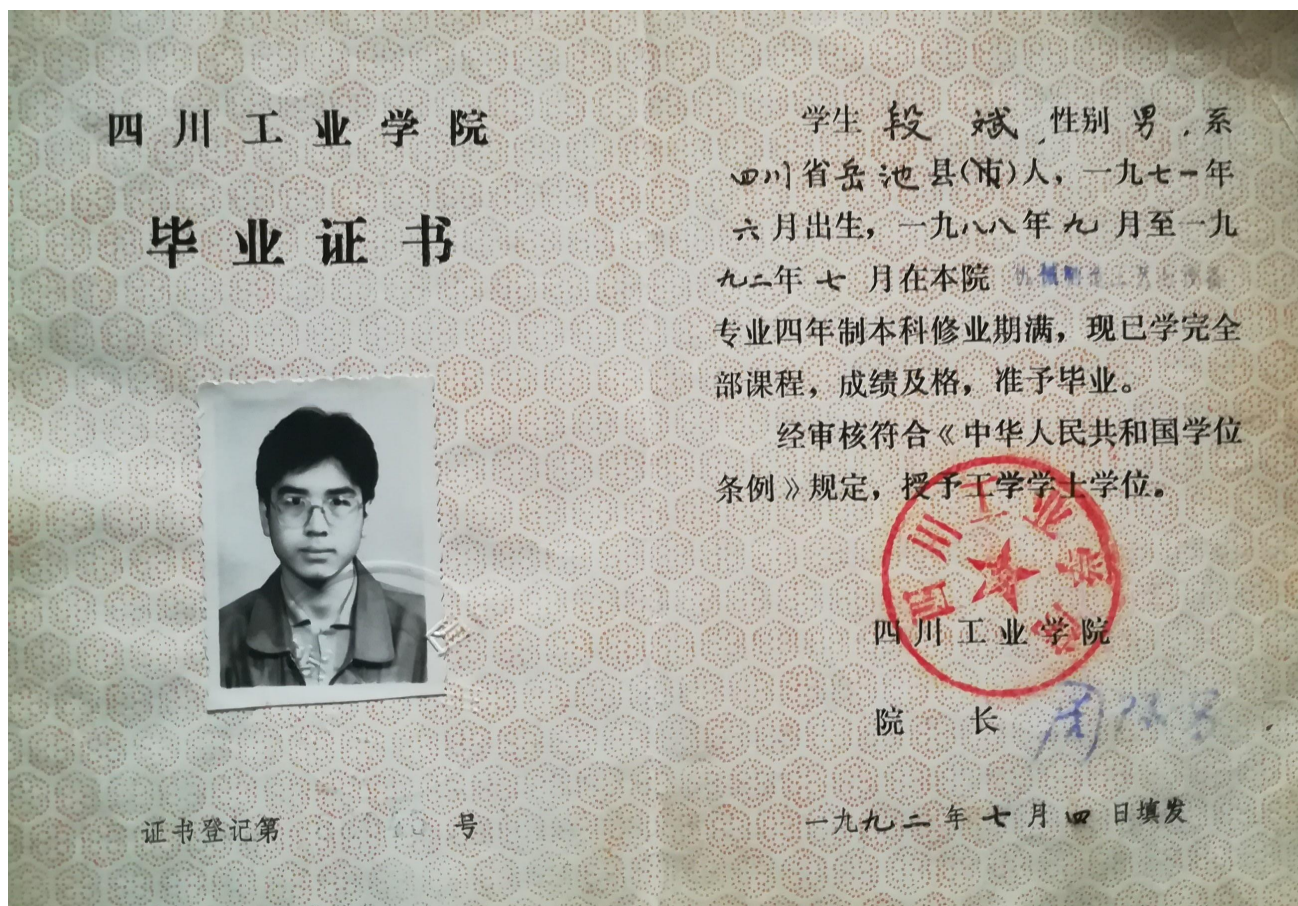 四川工业学院
毕业证书
证书登记第 号
学生 段斌，性别 男，系
四川省岳池县(市)人，一九七一年
六月出生，一九八八年九月至一九
九二年七月在本院
专业四年制本科修业期满，现已学完全
部课程，成绩及格，准予毕业。
经审核符合《中华人民共和国学位
条例》规定，授予工学学士学位。
四川工业学院
四川工业学院
院长
一九九二年七月四日填发